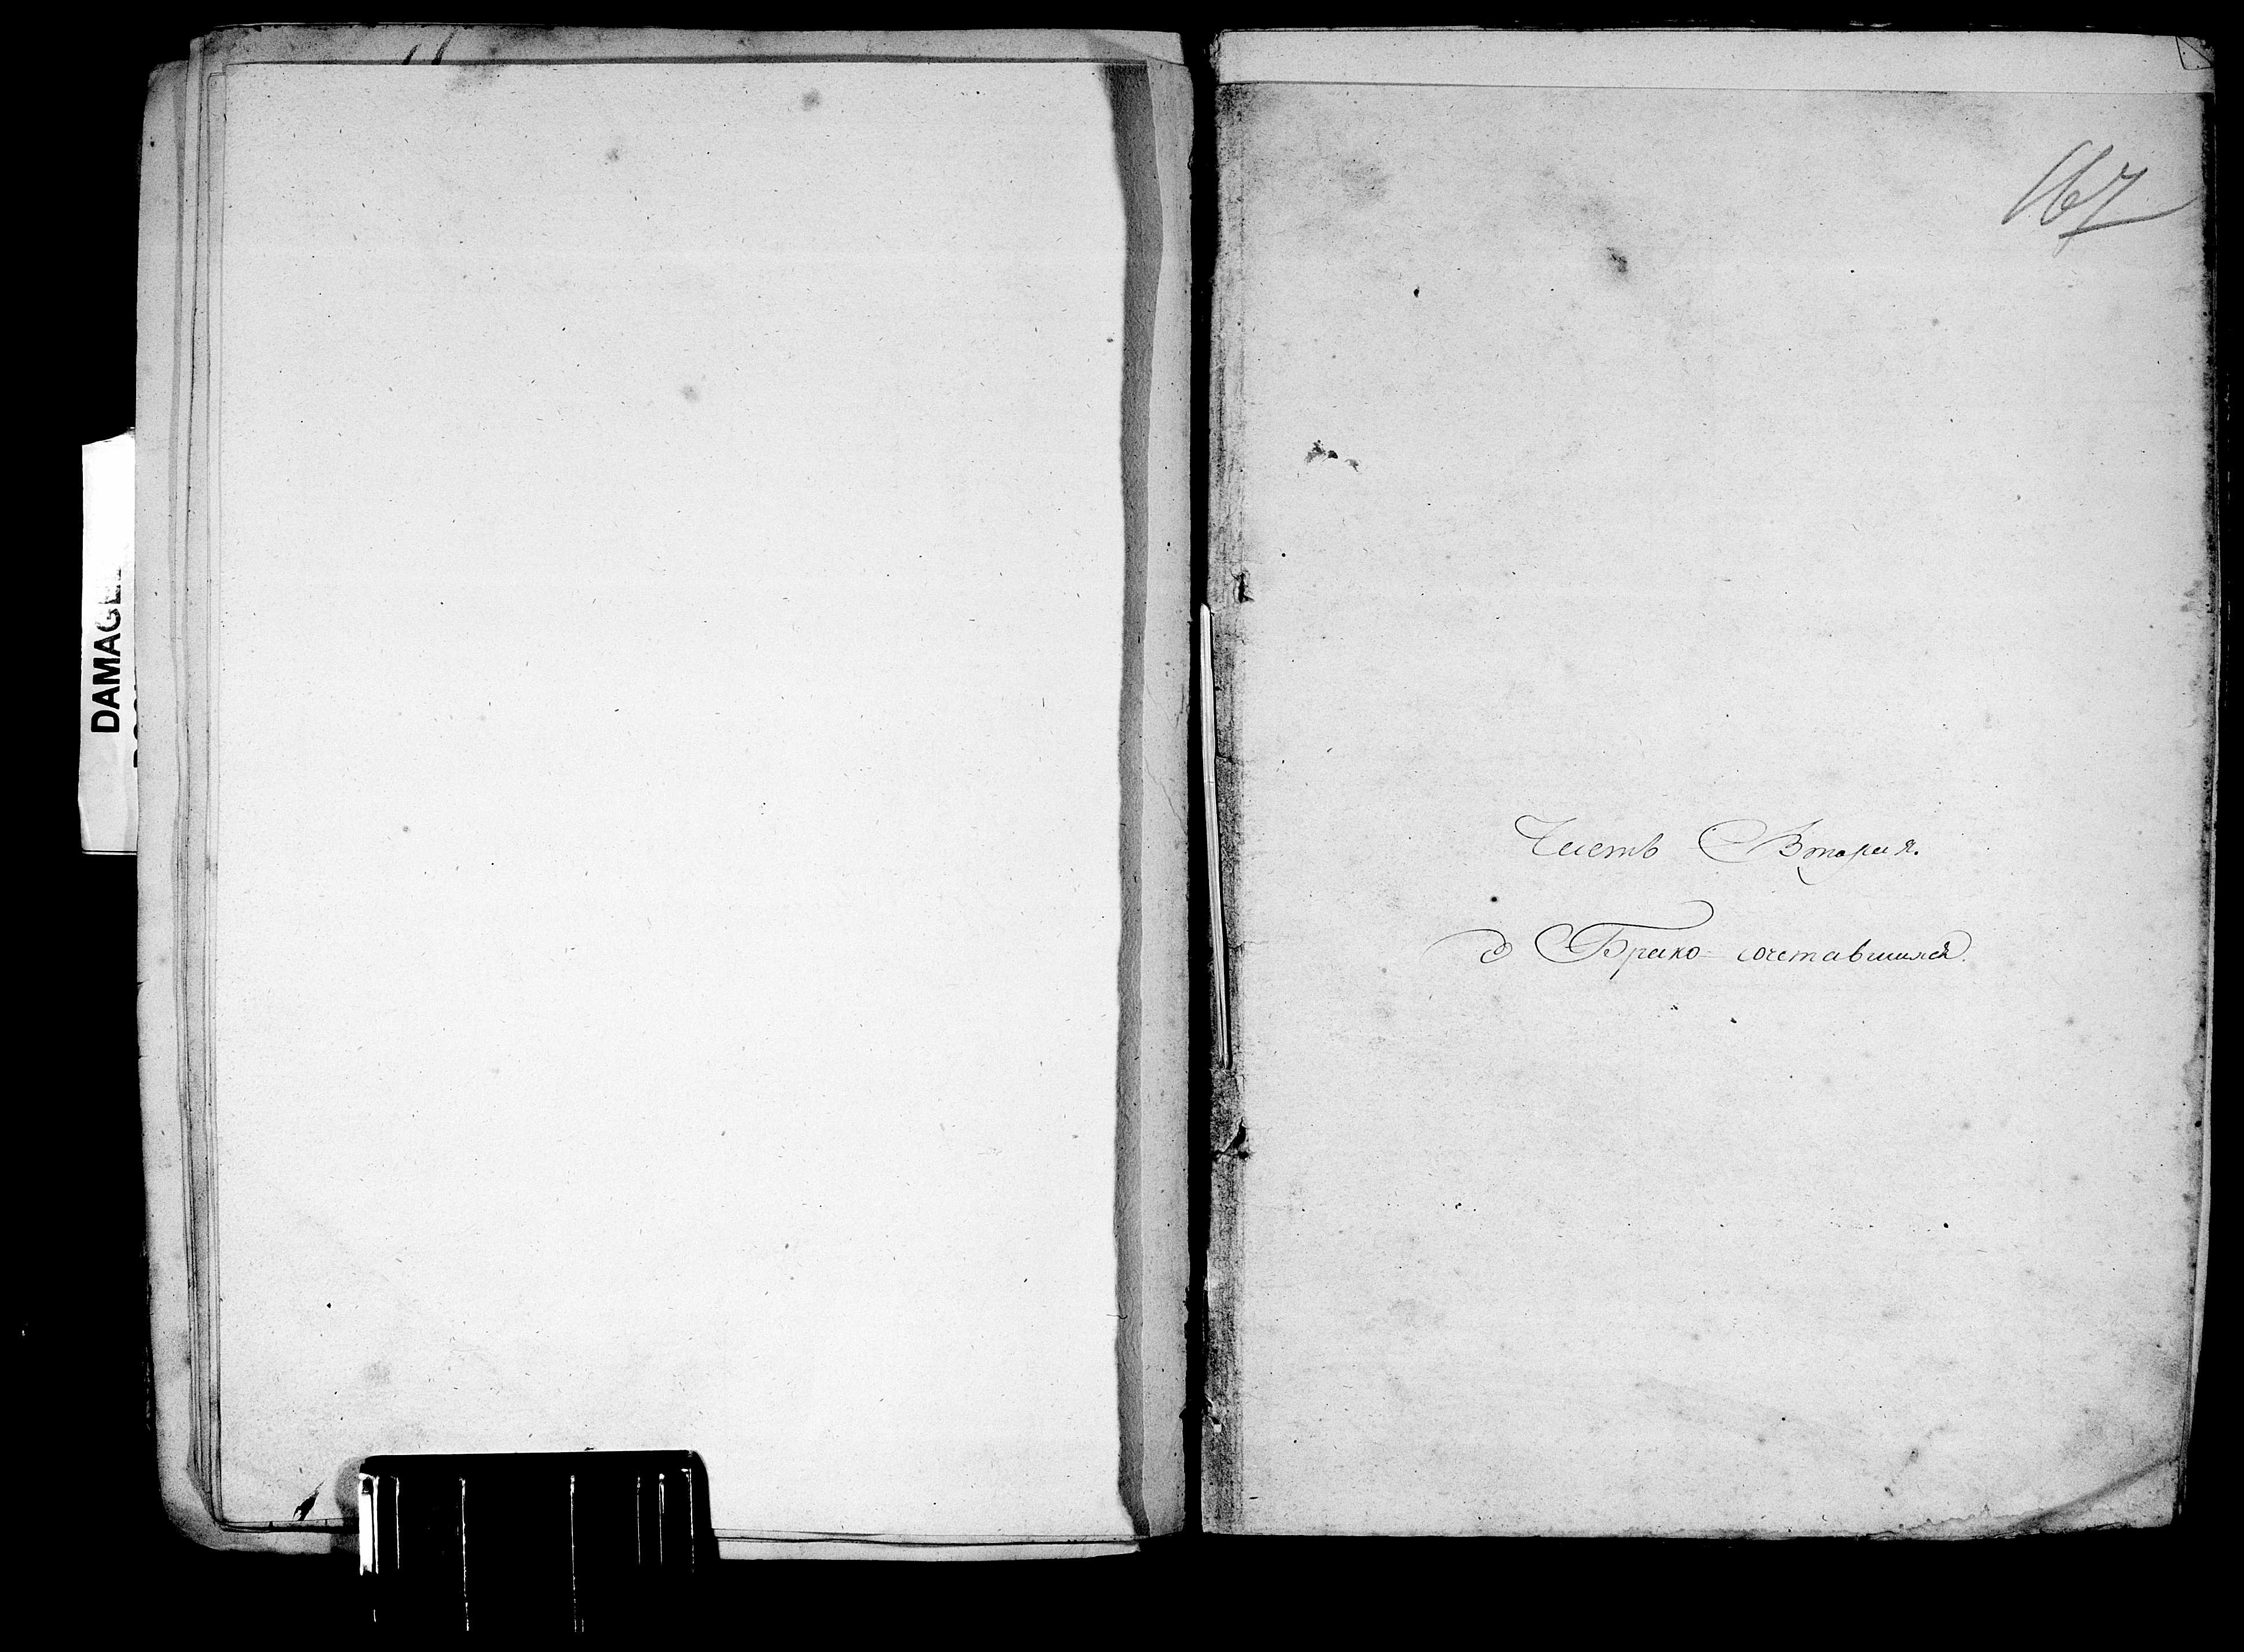 DAMAGE
167
Часть Вторая.
о Брако-сочетавшихся.